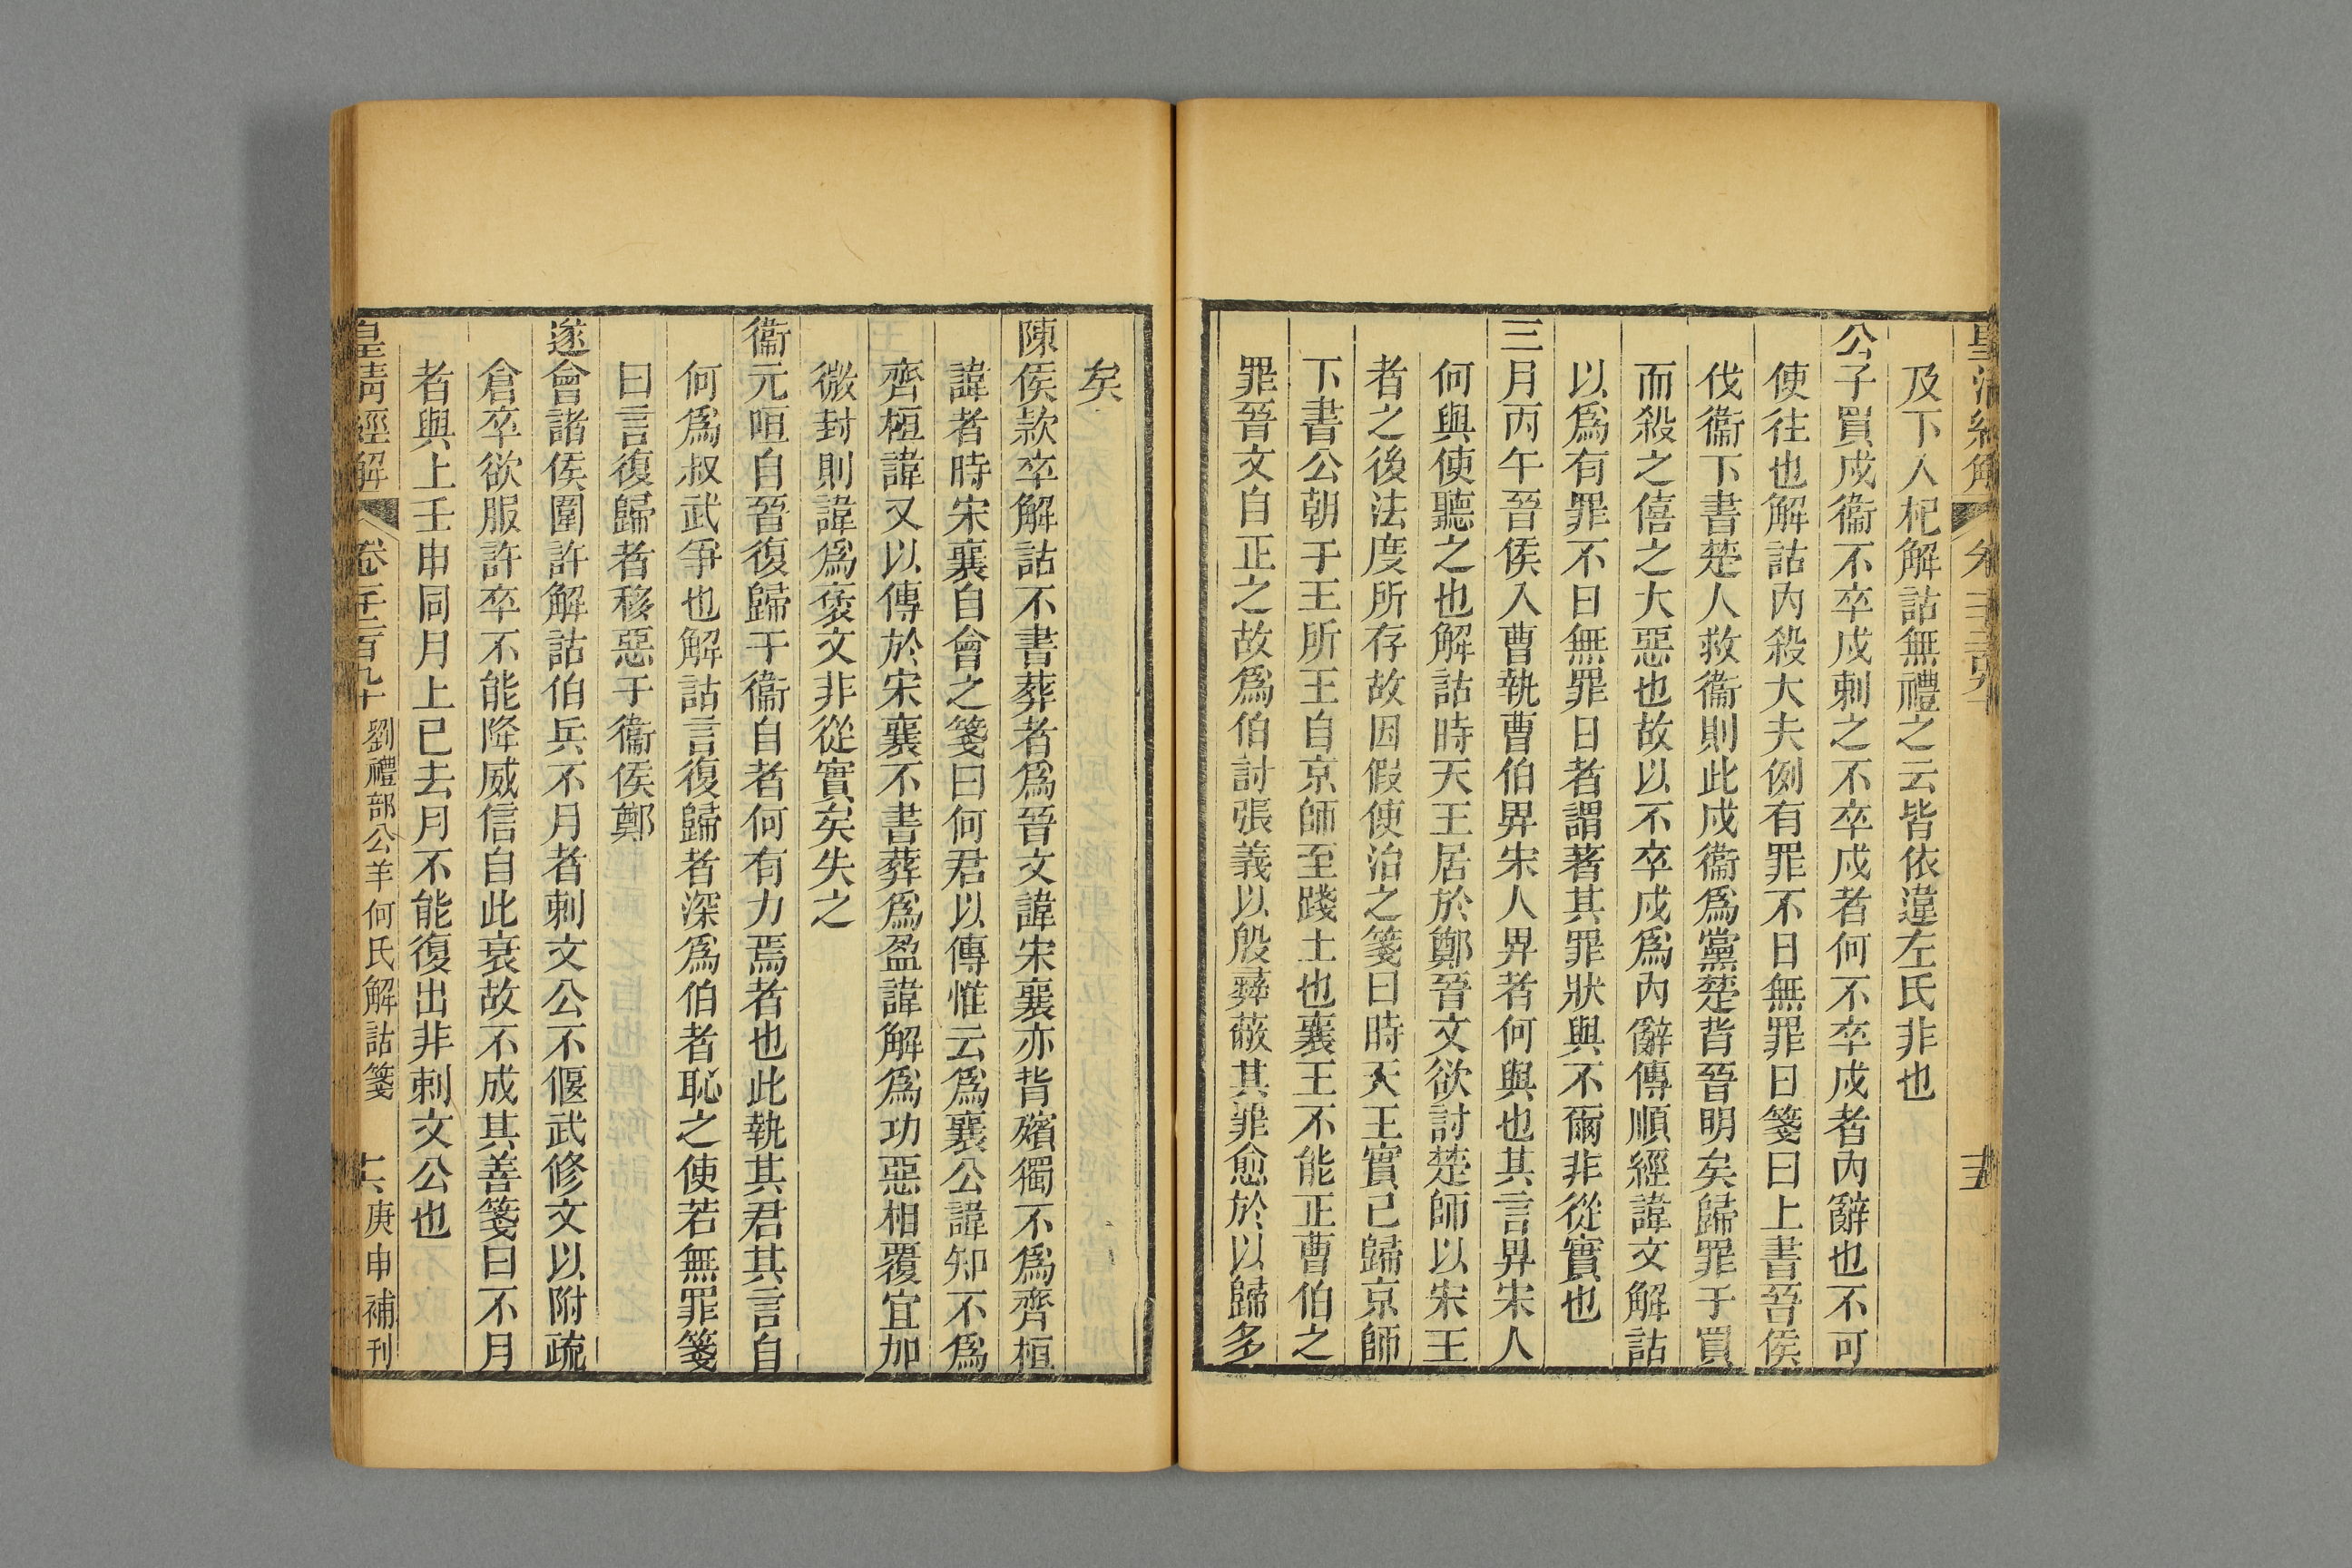 及下入杞解詁無禮之云皆依違左氏非也
公子買戍衞不卒戍刺之不卒戍者何不卒戍者內辭也不可
使往也解詁內殺大夫例有罪不日無罪日箋曰上書晉侯
伐衞下書楚人救衞則此戍衞爲黨楚背晉明矣歸罪于買
而殺之僖之大惡也故以不卒戍爲內辭傳順經諱文解詁
以爲有罪不日無罪日者謂著其罪狀與不爾非從實也
三月丙午晉侯入曹執曹伯畀宋人畀者何與也其言畀宋人
何與使聽之也解詁時天王居於鄭晉文欲討楚師以宋王
者之後法度所存故因假使治之箋曰時天王實已歸京師
下書公朝于王所王自京師至踐土也襄王不能正曹伯之
罪晉文自正之故爲伯討張義以殷彝蔽其罪愈於以歸多
矣
陳侯款卒解詁不書葬者爲晉文諱宋襄亦背殯獨不爲齊桓
諱者時宋襄自會之箋曰何君以傳惟云爲襄公諱知不爲
齊桓諱又以傳於宋襄不書葬爲盈諱解爲功惡相覆宜加
微封則諱爲褒文非從實矣失之
衞元咺自晉復歸于衞自者何有力焉者也此執其君其言自
何爲叔武爭也解詁言復歸者深爲伯者恥之使若無罪箋
曰言復歸者移惡于衞侯鄭
遂會諸侯圍許解詁伯兵不月者刺文公不偃武修文以附疏
倉卒欲服許卒不能降威信自此衰故不成其善箋曰不月
者與上壬申同月上已去月不能復出非刺文公也
皇清經解 卷千二百九十 劉禮部公羊何氏解詁箋 十六 庚申補刊